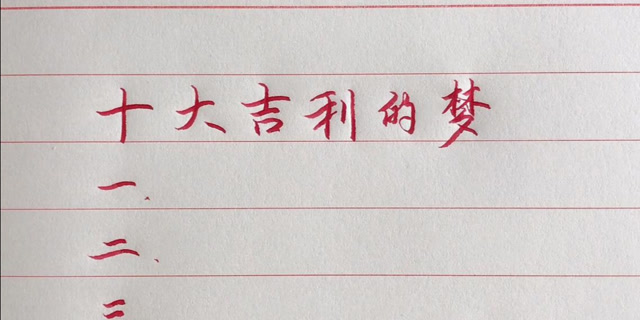 十大吉利的梦
一、
二、
三